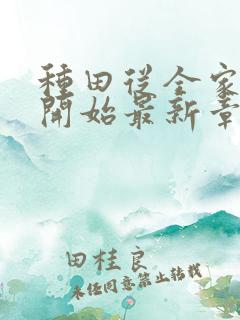 種田從全家
開始最新章
田桂良
未經同意禁止轉載